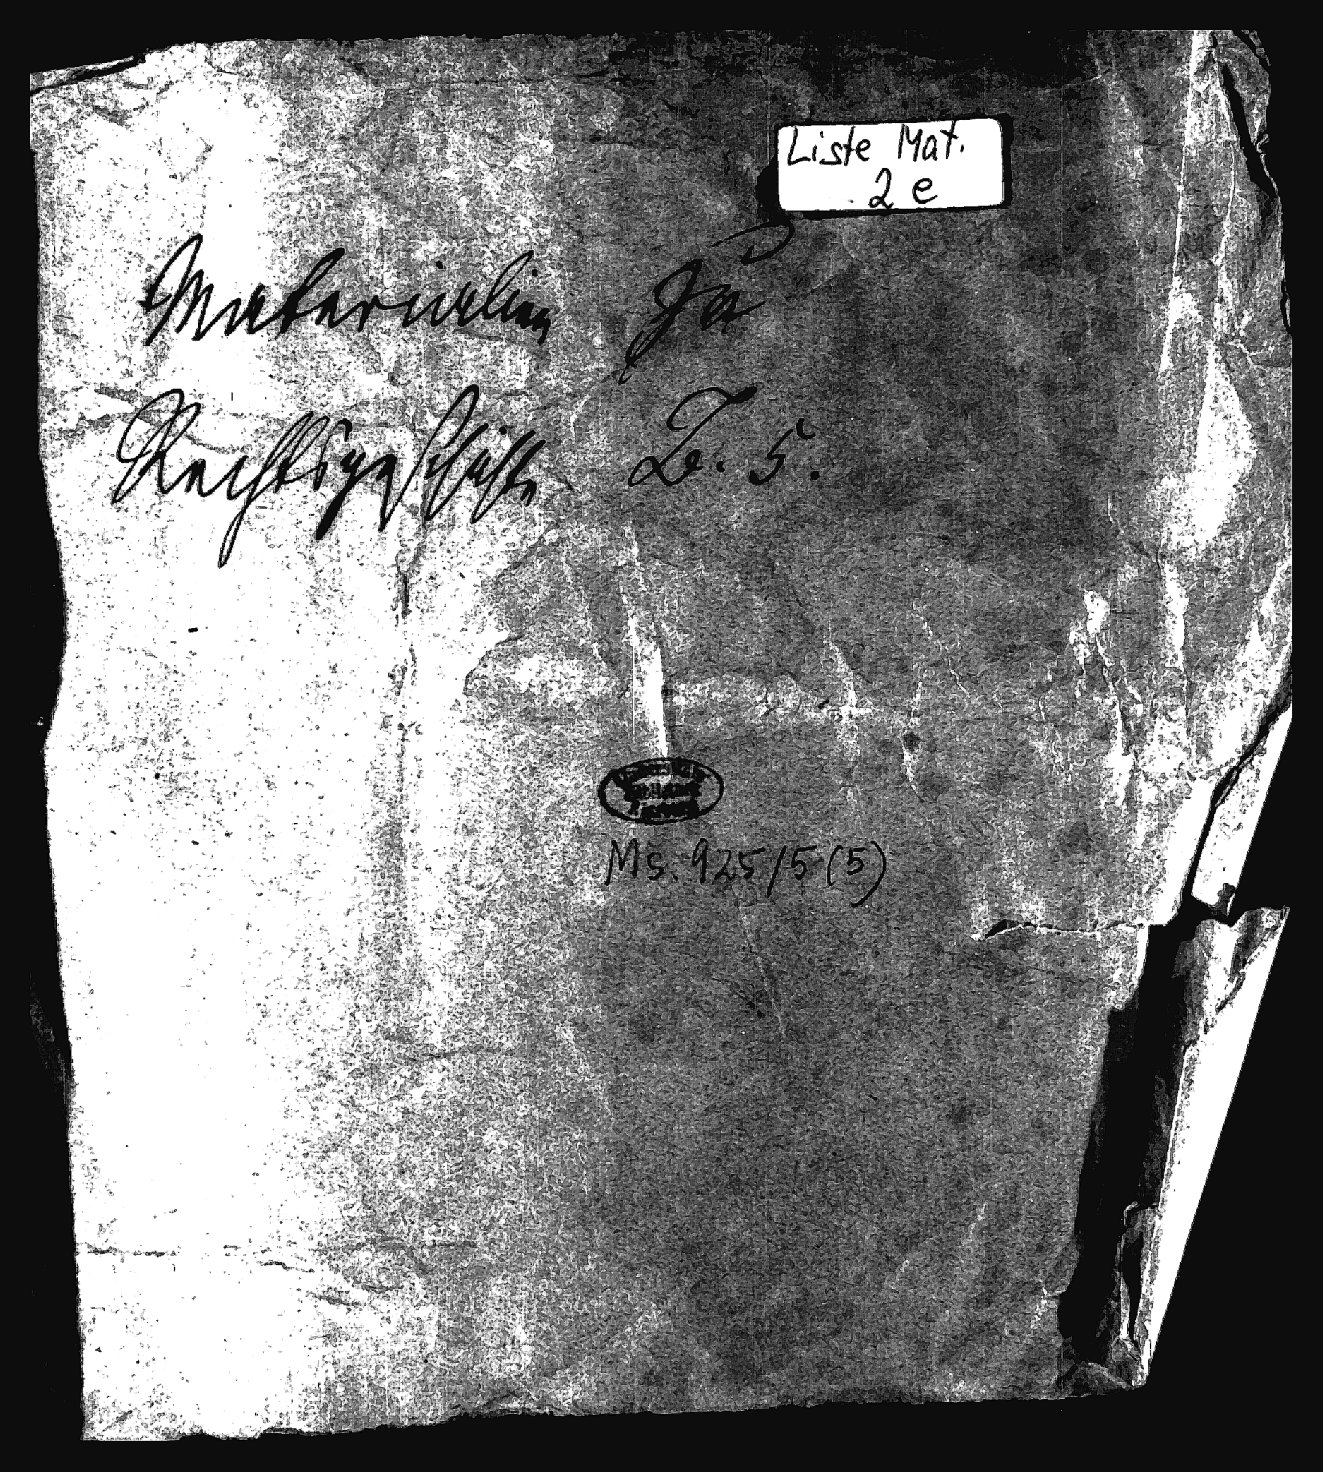 Liste Mat.
2 e
Materialien
Rechtsgeschäfte 5.
Ms. 925/5 (5)